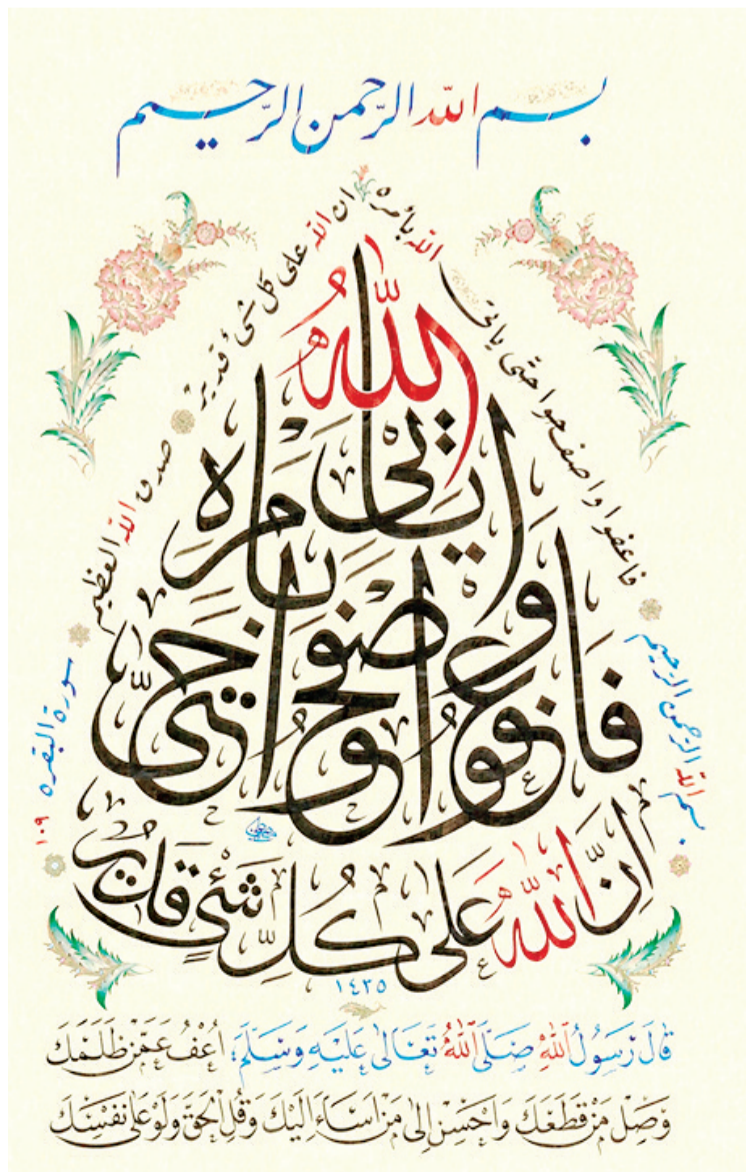 بسم الله الرحمن الرحيم
بسم الله الرحمن الرحيم
فاعفوا واصفحوا حتى ياتى الله بأمره
ان الله على كل شئ قدير
صدق الله العظيم
سورة البقره ١٠٩
فَاعفوا وَاصفحوا حَتّٰى
يَاتِىَ اللّٰه بِاَمرِه
اِنَّ اللّٰهَ عَلٰى كُلِّ شَىْءٍ قَدٖيرٌ
١٤٣٥
قَالَ رَسُولُ اللّٰهِ صَلَّى اللّٰهُ تَعَالٰى عَلَيْهِ وَسَلَّمَ، اُعْفُ عَمَّنْ ظَلَمَكَ
وَصِلْ مَنْ قَطَعَكَ وَاَحْسِنْ اِلٰى مَنْ اَسَاءَ اِلَيْكَ وَقُلِ الْحَقَّ وَلَوْ عَلٰى نَفْسِكَ